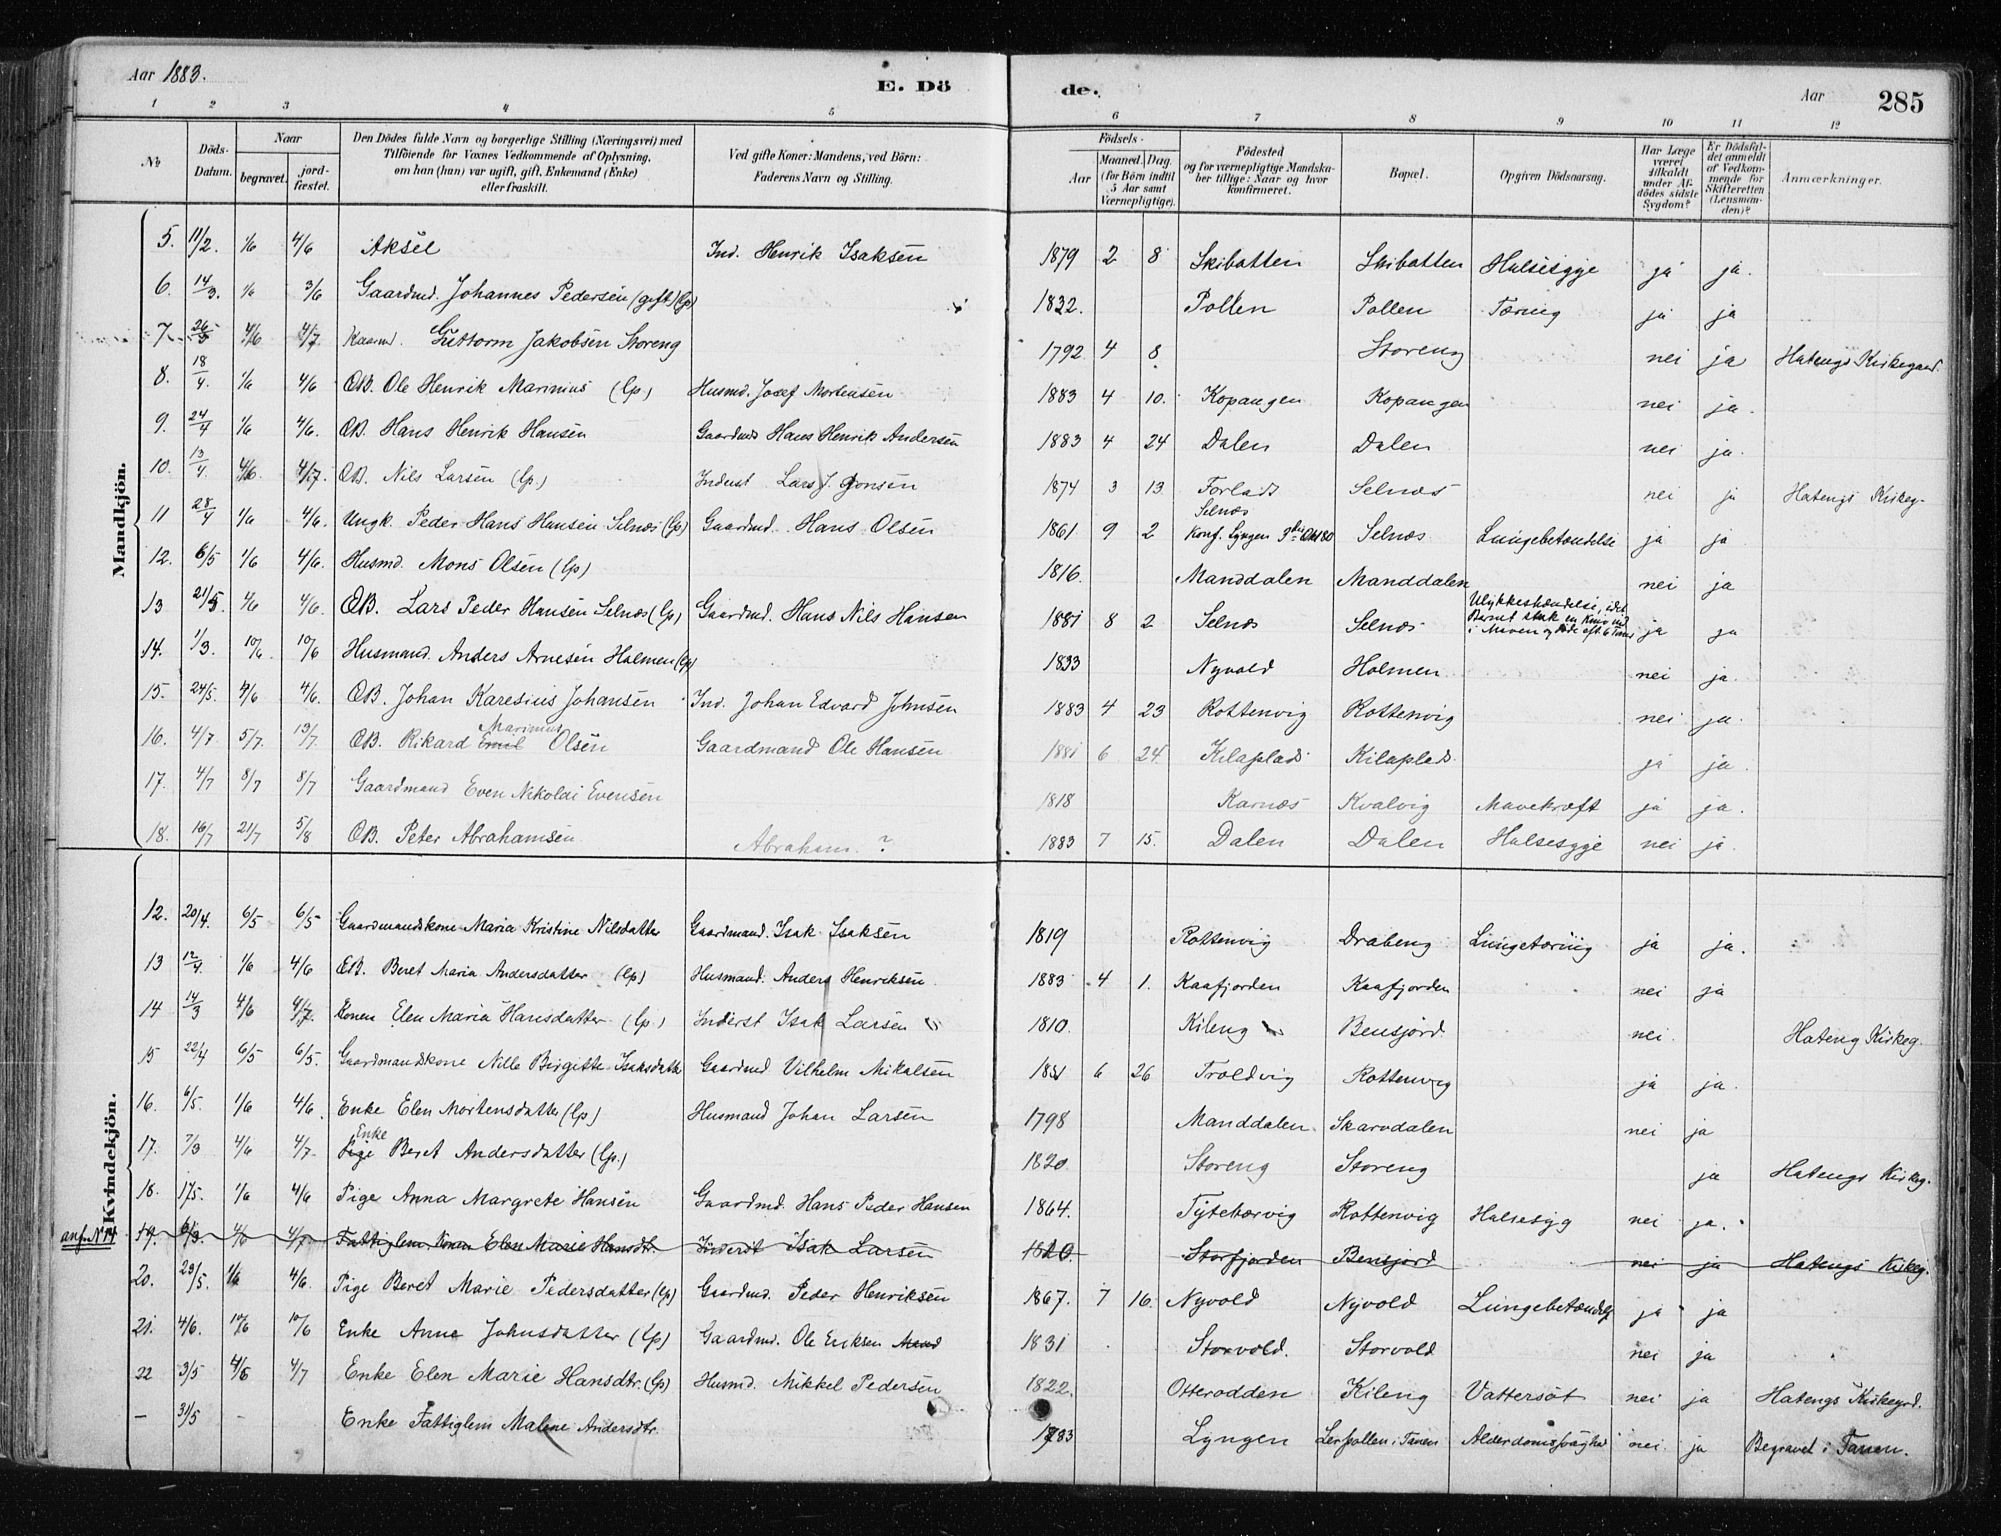 Aar 1883. E. Döde. Aar 285
1 2 3 4 5 6 7 8 9 10 11 12
No Döds-Datum. Naar begravet. jordfæstet. Den Dödes fulde Navn og borgerlige Stilling (Næringsvei) med Tilföiende for Voxnes Vedkommende af Oplysning, om han (hun) var ugift, gift, Enkemand (Enke) eller fraskilt. Ved gifte Koner: Mandens, ved Börn: Faderens Navn og Stilling. Födsels- Aar Maaned. Dag. (for Börn indtil 5 Aar samt Værnepligtige). Födested og for værnepligtige Mandskaber tillige: Naar og hvor konfirmeret. Bopæl. Opgiven Dödsaarsag. Har Læge været tilkaldt under Afdödes sidste Sygdom? Er Dödsfaldet anmeldt af Vedkommende for Skifteretten (Lensmanden)? Anmærkninger.
Mandkjön.
5. 11/2. 1/6 4/6 Aksel Ind. Henrik Isaksen 1879 2 8 Skibotten Skibotten Halsesyge ja ja.
6. 14/3. 1/6 3/6 Gaardmd. Johannes Pedersen (gift) (lp) 1832. Pollen Pollen Tæring ja ja
7. 26/3 4/6 4/7 Kaarmd. Guttorm Jakobsen Storeng 1792 4 8 Storeng nei ja Hatengs Kirkegaard.
8. 18/4. 1/6 4/6 ÆB. Ole Henrik Marinius (lp) Husmd. Josef Mortensen 1883 4 10. Kopangen Kopangen nei ja.
9. 24/4 1/6 4/6. ÆB. Hans Henrik Hansen Gaardmd Hans Henrik Andersen 1883 4 24 Dalen Dalen nei ja.
10. 13/4. 4/6. 4/7. ÆB. Nils Larsen (lp.) Inderst Lars J. Jonsen 1874 3 13 Forlads Selnæs nei ja Hatengs Kirkeg.
11 28/4 1/6 4/6. Ungk. Peder Hans Hansen Selnæs (lp) Gaardmd. Hans Olsen 1861 9 2 Selnæs Konf. Lyngen 3die Okt 80 Selnæs Lungebetændelse ja ja
12. 6/5 1/6 4/6. Husmd. Mons Olsen (lp) 1816. Manddalen Manddalen nei ja
13 21/5. 4/6 4/6. ÆB. Lars Peder Hansen Selnæs (lp) Gaardmd. Hans Nils Hansen 1881 8 2 Selnæs Selnæs Ulykkeshændelse, idet Barnet stak en Kniv ind i Maven og döde eft. 6 Timer ja ja
14. 1/3. 10/6 10/6 Husmand. Anders Arnesen Holmen (lp) 1833 Nyvold Holmen nei ja.
15. 24/5. 4/6 4/6. ÆB. Johan Karesius Johansen Ind. Johan Edvard Johnsen 1883 4 23 Rottenvig Rottenvig nei ja.
16. 4/7 5/7. 13/7 ÆB. Rikard Emil Marinius Olsen Gaardmand Ole Hansen 1881 6 24 Kilaplads Kilaplads ja ja.
17. 4/7 8/7 8/7 Gaardmand Even Nikolai Evensen 1818 Karnæs Kvalvig Mavekræft ja ja.
18. 16/7 21/7 5/8 ÆB. Peter Abrahamsen Abraham. ? 1883 7 15. Dalen Dalen Halsesyge nei ja
Kvindekjön.
12. 20/4 6/5 6/5 Gaardmandskone Maria Kristine Nilsdatter Gaardmand. Isak Isaksen 1819 Rottenvig Drabeng Lungetæring ja ja.
13 12/4. 1/6 4/6 ÆB. Beret Maria Andersdatter (lp) Husmand. Anders Henriksen. 1883 4 1. Kaafjorden Kaafjorden nei ja
14 14/3 4/6 4/7. Konen Elen Maria Hansdatter (lp) Inderst Isak Larsen 1810. Kileng Bensjord. nei. Hateng Kirkeg.
15 22/4 6/5 6/5. Gaardmandskone Nille Birgitte Isaksdatter Gaardmd Vilhelm Mikalsen 1851 6 26 Troldvig Rottenvig ja ja.
16. 6/5. 1/6 4/6. Enke Elen Mortensdatter (lp) Husmand Johan Larsen 1798 Manddalen. Skarvdalen nei ja
17. 7/3 4/6 4/7. Pige Enke Beret Andersdatter (lp.) 1820 Storeng Storeng ja Hatengs Kirkeg.
18. 17/5. 1/6 4/6 Pige Anna Margrete Hansen Gaardmd. Hans Peder Hansen 1864. Tytebærvig Rottenvig Halsesyg nei ja.
anf. N 14 19. 6/3. 4/6 4/7 Fattiglem Konen Elen Marie Hansdtr. Inderst Isak Larsen 1810 Storfjorden Bensjord nei ja Hatengs Kirkeg.
20. 23/5. 1/6 4/6. Pige Beret Marie Pedersdatter (lp) Gaardmd. Peder Henriksen 1867. 7 16. Nyvold Nyvold Lungebetændelse ja ja
21. 4/6. 10/6 10/6 Enke Anne Johnsdatter (lp) Gaardmd. Ole Eriksen 1831 Storvold. Storvold nei ja
22 3/5 4/6 4/7 Enke Elen Marie Hansdtr. (lp) Husmd. Mikkel Pedersen 1822. Otterodden Kileng Vattersot nei ja Hatengs Kirkegrd.
- 31/5 - Enke Fattiglem Malene Andersdtr. 1783 Lyngen Leirpollen i Tanen Alderdomssvaghed nei ja Begravet i Tanen.